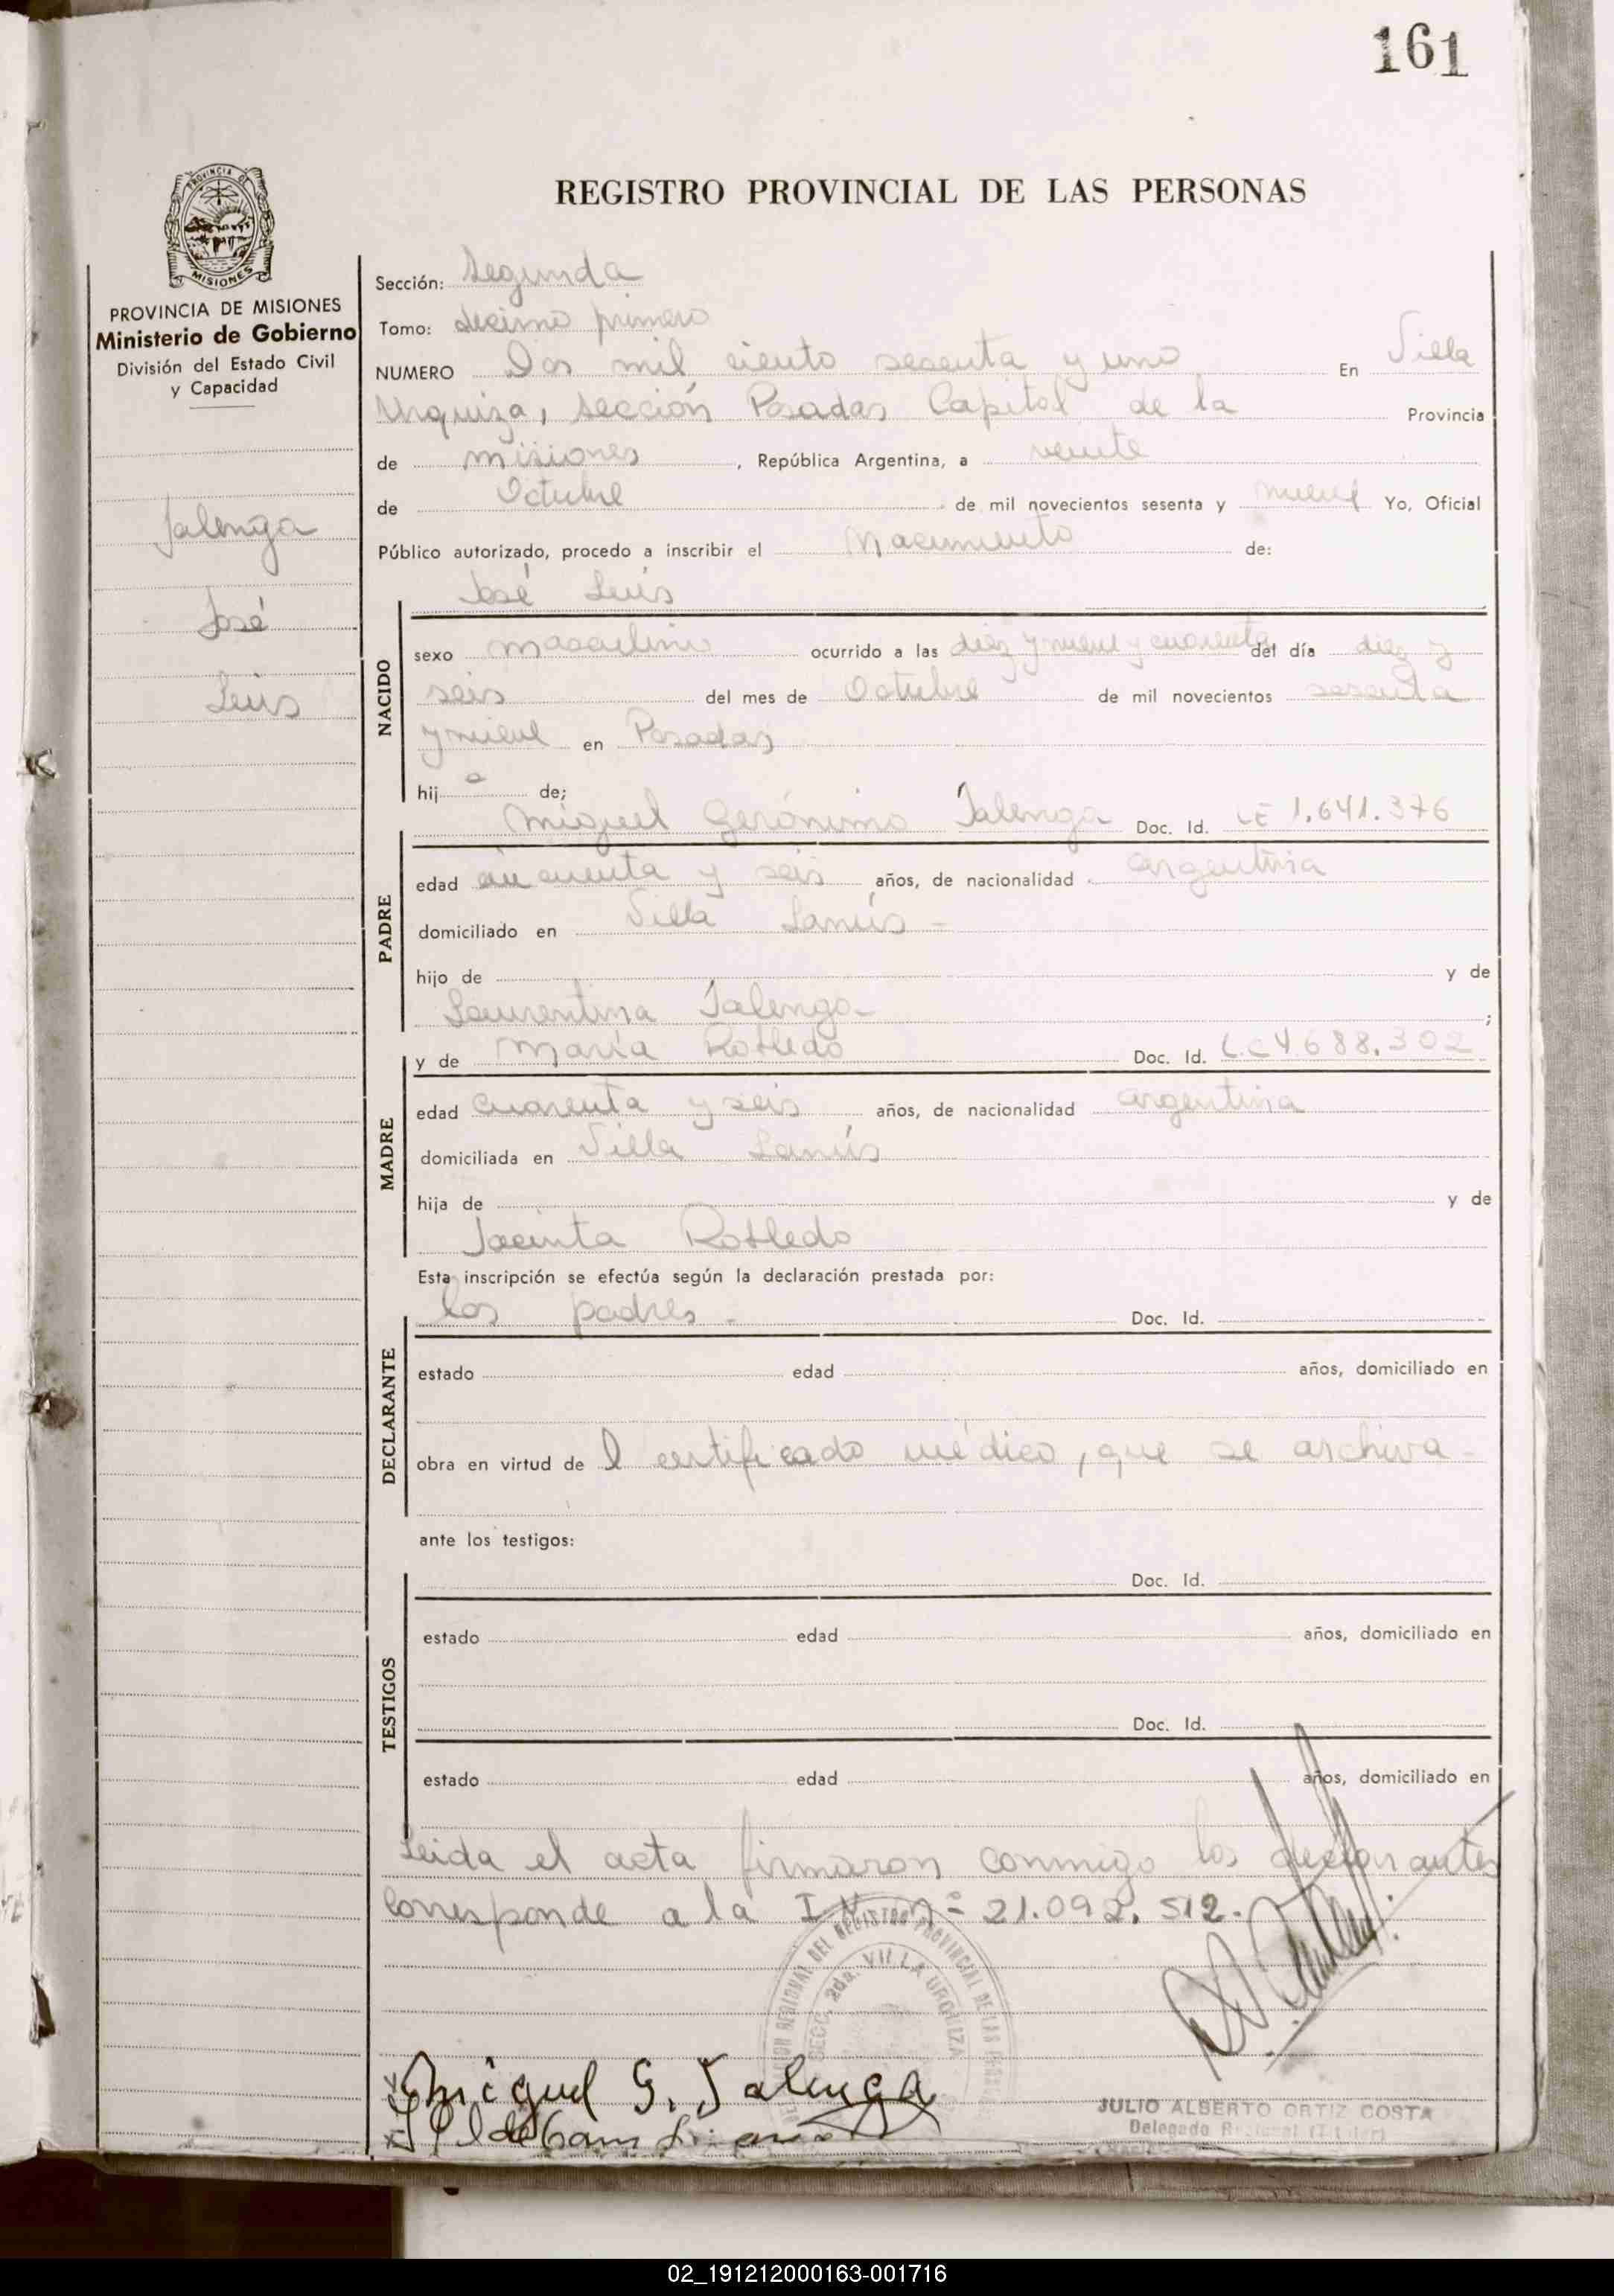 161
REGISTRO PROVINCIAL DE LAS PERSONAS
PROVINCIA DE MISIONES
PROVINCIA DE MISIONES
Ministerio de Gobierno
División del Estado Civil
y Capacidad
Jalenga
José
Luis
Sección: Segunda
Tomo: décimo primero
NUMERO Dos mil ciento sesenta y uno En Villa
Urquiza, Sección Posadas Capital de la Provincia
de misiones, República Argentina, a veinte
de Octubre de mil novecientos sesenta y nueve Yo, Oficial
Público autorizado, procedo a inscribir el Nacimiento de:
José Luis
NACIDO
sexo masculino ocurrido a las diez y nueve y cuarenta del día diez y
seis del mes de Octubre de mil novecientos sesenta
y nueve en Posadas
hijo de;
Miguel Gerónimo Jalenga Doc. Id. LE 1.641.376
PADRE
edad cincuenta y seis años, de nacionalidad argentina
domiciliado en Villa Lanús -
hijo de y de
Laurentina Jalenga ;
y de María Robledo Doc. Id. L.C 4688.302
MADRE
edad cuarenta y seis años, de nacionalidad argentina
domiciliada en Villa Lanús
hija de y de
Jacinta Robledo
Esta inscripción se efectúa según la declaración prestada por:
los padres - Doc. Id.
DECLARANTE
estado edad años, domiciliado en
obra en virtud de l certificado médico, que se archiva -
ante los testigos:
Doc. Id.
TESTIGOS
estado edad años, domiciliado en
Doc. Id.
estado edad años, domiciliado en
Leida el acta firmaron conmigo los declarantes
Corresponde a la I.N. nº 21.092.512.
REGIONAL DEL REGISTRO PROVINCIAL DE LAS
SECC. 2da. VILLA URQUIZA
Miguel G. Jalenga
JULIO ALBERTO ORTIZ COSTA
Delegado
02_191212000163-001716